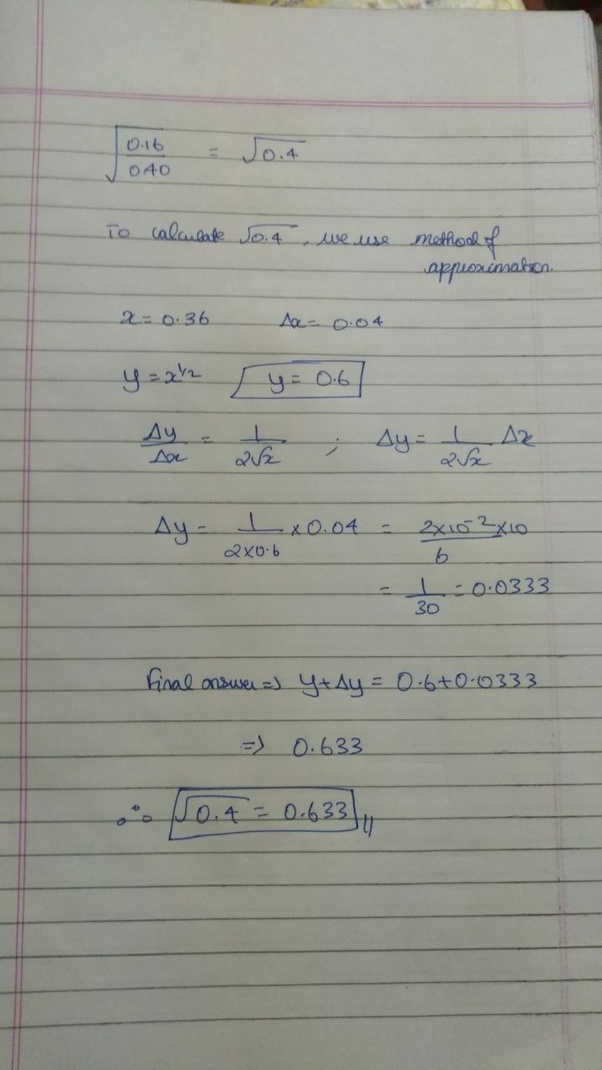 √(0.16/0.40) = √0.4
To calculate √0.4, we use method of
approximation.
x = 0.36 Δx = 0.04
y = x^1/2 y = 0.6
Δy/Δx = 1/(2√x) ; Δy = 1/(2√x) Δx
Δy = 1/(2×0.6) × 0.04 = (2×10^-2×10)/6
= 1/30 = 0.0333
Final answer ⇒ y+Δy = 0.6+0.0333
⇒ 0.633
∴ √0.4 = 0.633 //